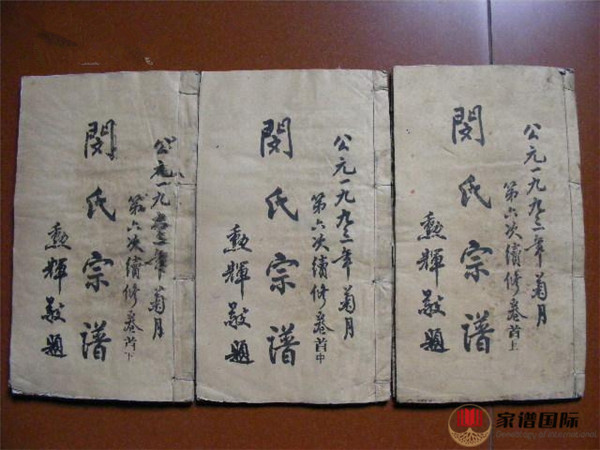 公元一九九三年菊月
第六次續修卷首上
閔氏宗谱
勲輝敬題
公元一九九三年菊月
第六次續修卷首中
閔氏宗谱
勲輝敬題
公元一九九三年菊月
第六次續修卷首下
閔氏宗谱
勲輝敬題
家谱国际